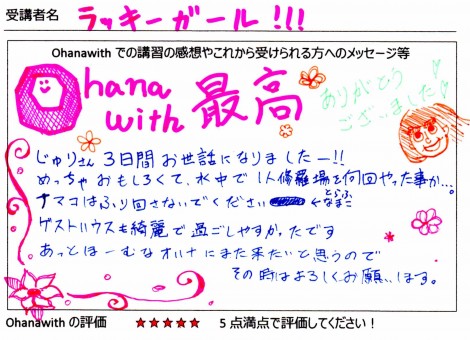 受講者名 ラッキーガール!!!
Ohanawith での講習の感想やこれから受けられる方へのメッセージ等
Ohana
with 最高
ありがとう
ございました
じゅりさん 3日間お世話になりましたー!!
めっちゃおもしろくて、水中で1人修羅場を何回やった事か…
ナマコはふり回さないでください ←とらふ
なまこ
ゲストハウスも綺麗で過ごしやすかったです
あっとほーむなオハナにまた来たいと思うので
その時はよろしくお願いします。
Ohanawith の評価 ★★★★★ 5 点満点で評価してください！